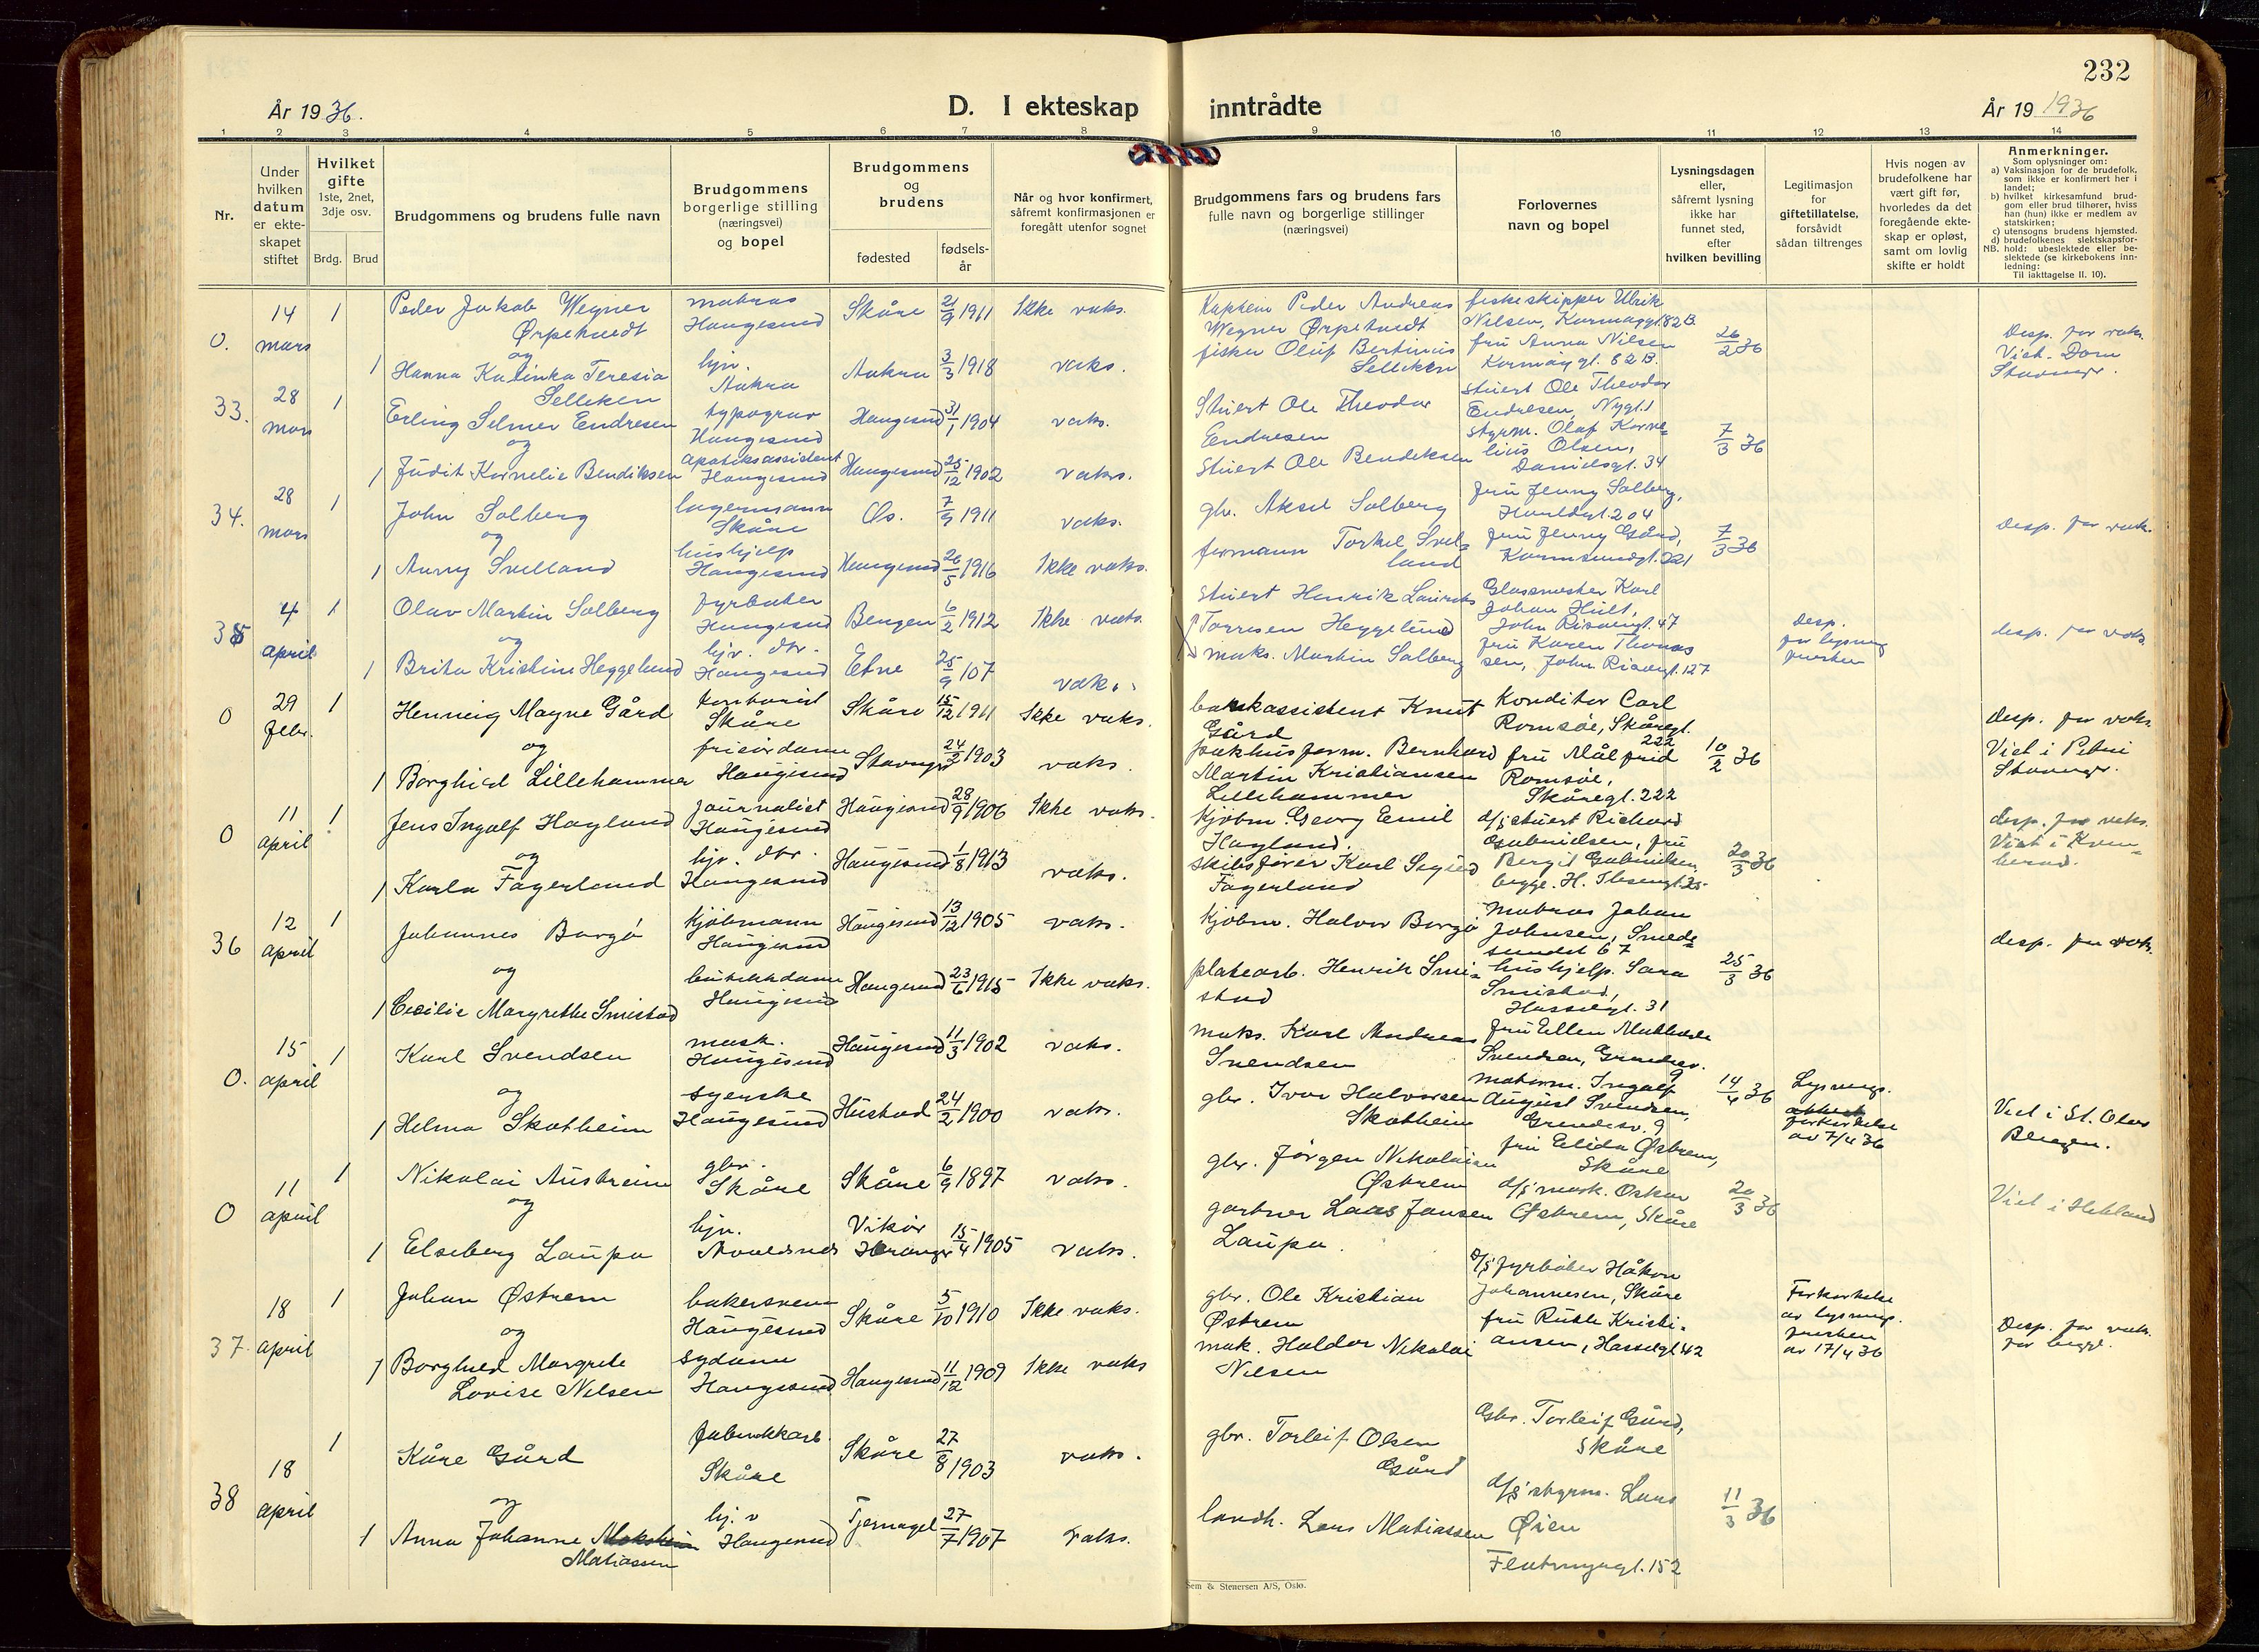 232
År 1936.
D. I ekteskap inntrådte
År 19 1936
1 2 3 4 5 6 7 8 9 10 11 12 13 14
Nr.
Under hvilken datum er ekteskapet stiftet
Hvilket gifte 1ste, 2net, 3dje osv.
Brdg. Brud
Brudgommens og brudens fulle navn
Brudgommens borgerlige stilling (næringsvei) og bopel
Brudgommens og brudens
fødested
fødselsår
Når og hvor konfirmert, såfremt konfirmasjonen er foregått utenfor sognet
Brudgommens fars og brudens fars fulle navn og borgerlige stillinger (næringsvei)
Forlovernes navn og bopel
Lysningsdagen eller, såfremt lysning ikke har funnet sted, efter hvilken bevilling
Legitimasjon for giftetillatelse, forsåvidt sådan tiltrenges
Hvis nogen av brudefolkene har vært gift før, hvorledes da det foregående ekteskap er opløst, samt om lovlig skifte er holdt
Anmerkninger.
Som oplysninger om:
a) Vaksinasjon for de brudefolk, som ikke er konfirmert her i landet;
b) hvilket kirkesamfund brudgom eller brud tilhører, hviss han (hun) ikke er medlem av statskirken;
c) utensogns brudens hjemsted.
d) brudefolkenes slektskapsforhold: ubeslektede eller beslektede (se kirkebokens innledning:
NB.
Til iakttagelse II. 10).
0. 14 mars 1 Peder Jakob Wegner Ørpetvedt matros Haugesund Skåre 21/9 1911 Ikke vaks. Kaptein Peder Andreas Wegner Ørpetvedt fiskeskipper Ulrik Nilsen, Karmøygt. 82B. 26/2 36 Desp. for vaks. Viet. Dom Stavanger.
og
1 Hanna Katinka Teresia Selleken hjv. Aakra Aakra 3/3 1918 vaks. fisker Oluf Bertinius Selleken fru Anna Nilsen Karmøygt. 82B.
33. 28 mars 1 Erling Selmer Endresen typograv Haugesund Haugesund 31/1 1904 vaks. Stuert Ole Theodor Endresen Stuert Ole Theodor Endresen, Nygt. 1 7/3 36
og
1 Judit Kornelie Bendiksen apoteksassistent Haugesund Haugesund 25/12 1902 vaks. Stuert Ole Bendiksen styrm. Olaf Kornelius Olsen, Danielsgt. 34
34. 28 mars 1 John Solberg lagermann Skåre Os. 7/9 1911 vaks. gbr. Aksel Solberg Fru Jenny Solberg, Haraldsgt. 204 7/3 36 desp. for vaks.
og
1 Anny Svelland hushjelp Haugesund Haugesund 26/5 1916 Ikke vaks. formann Torkel Svelland Fru Jenny Gård, Karmsundgt. 221
35 4 april 1 Olav Martin Solberg Fyrbøter Haugesund Bergen 6/2 1912 Ikke vaks. Stuert Henrik Laurits Torresen Heggelund Glassmester Karl Johan Hult, John Risøengt. 47 desp. for lysning presten desp. for vaks.
og
1 Brita Kristine Heggelund hjv. dtr. Haugesund Etne 25/9 107 vaks. maks. Martin Solberg fru Karen Thomassen, John Risøengt. 127
0 29 febr. 1 Henneig Magne Gård kontorist Skåre Skåre 15/12 1911 Ikke vaks. bankassistent Knut Gård Konditor Carl Romsøe, Skåregt. 222 10/2 36 desp. for vaks. Viet i Petri Stavanger.
og
1 Borghild Lillehammer frisørdame Haugesund Stavanger 24/2 1903 vaks. pakhusform. Bernhard Martin Kristiansen Lillehammer fru Målfrid Romsøe, Skåregt. 222
0 11 april 1 Jens Ingolf Hagland journalist Haugesund Haugesund 28/9 1906 Ikke vaks. Kjøbm. Georg Emil Hagland. d/s stuert Richard Gabrielsen, fru 20/3 36 desp. for vaks.
og
1 Karla Fagerland hjv. dtr. Haugesund Haugesund 1/8 1913 vaks. skibsfører Karl Sigurd Fagerland Bergit Gabrielsen, begge. H. Ibsengt. 25
36 12 april 1 Johannes Borgø kjøbmann Haugesund Haugesund 13/12 1905 vaks. kjøbm. Halvor Borgø Matros Johan Johnsen, Smedasundet 67 25/3 36 desp. for vaks.
og
1 Cecilie Margrethe Smistad butikkdame Haugesund Haugesund 23/6 1915 Ikke vaks. platearb. Henrik Smistad hushjelp. Sara Smistad, Hasselgt. 31
0. 15 april 1 Karl Svendsen mask. Haugesund Haugesund 11/3 1902 vaks. maks. Karl Andreas Svendsen Fru Ellen Mathilde Svendsen, Grindesv. 9 14/4 36 Lysnings. attest forkortelse av 7/4 36 Viet i St. Olav Bergen.
og
1 Helma Skotheim syerske Haugesund Hustad 24/2 1900 vaks. gbr. Ivar Halvorsen Skotheim matrm. Ingolf August Svendsen, Grindesv. 9
0 11 april 1 Nikolai Austreim gbr. Skåre Skåre 6/9 1897 vaks. gbr. Jørgen Nikolaisen Østrem fru Elida Østrem, Skåre 20/3 36
og
1 Elseberg Laupa hjv. Avaldsnes Vikør Hardanger 15/4 1905 vaks. gartner Laas Jansen Laupa. d/s mask. Oskar Østrem, Skåre
37. 18 april 1 Johan Østrem bakersvenn Haugesund Skåre 5/10 1910 Ikke vaks. gbr. Ole Kristian Østrem d/s fyrbøter Håkon Johannesen, Skåre Forkortelse av lysning. presten av 17/4 36 Desp. for vaks. for begge.
og
1 Borghild Margrete Lovise Nilsen sydame Haugesund Haugesund 11/12 1909 Ikke vaks mak. Haldor Nikolai Nilsen fru Ruth Kristiansen, Hasselgt. 42
38 18 april 1 Kåre Gård Fabrikkarb. Skåre Skåre 27/8 1903 vaks. gbr. Torleif Olsen Gård Gbr. Torleif Gård, Skåre 11/3 36
og
1 Anna Johanne Matiassen hj. v Haugesund Tjernagel 27/7 1907 vaks. landh. Lars Matiassen d/s styrm. Lars Øien Flotmyrgt. 152
Sem & Stenersen A/S, Oslo.